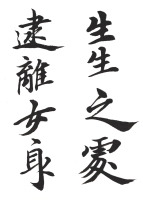 生生之處
逮離女身